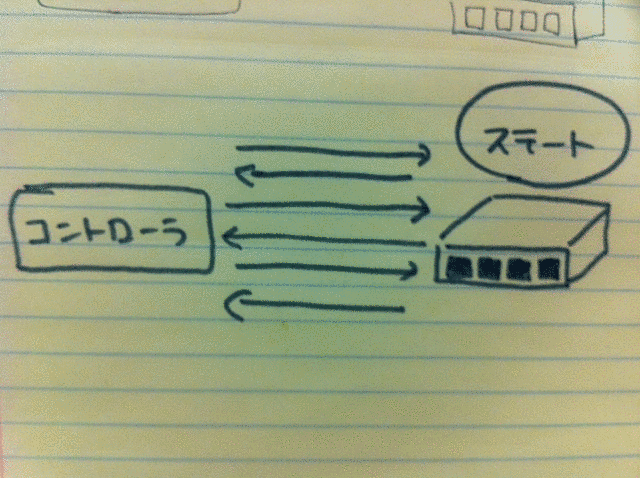 ステート
コントローラ